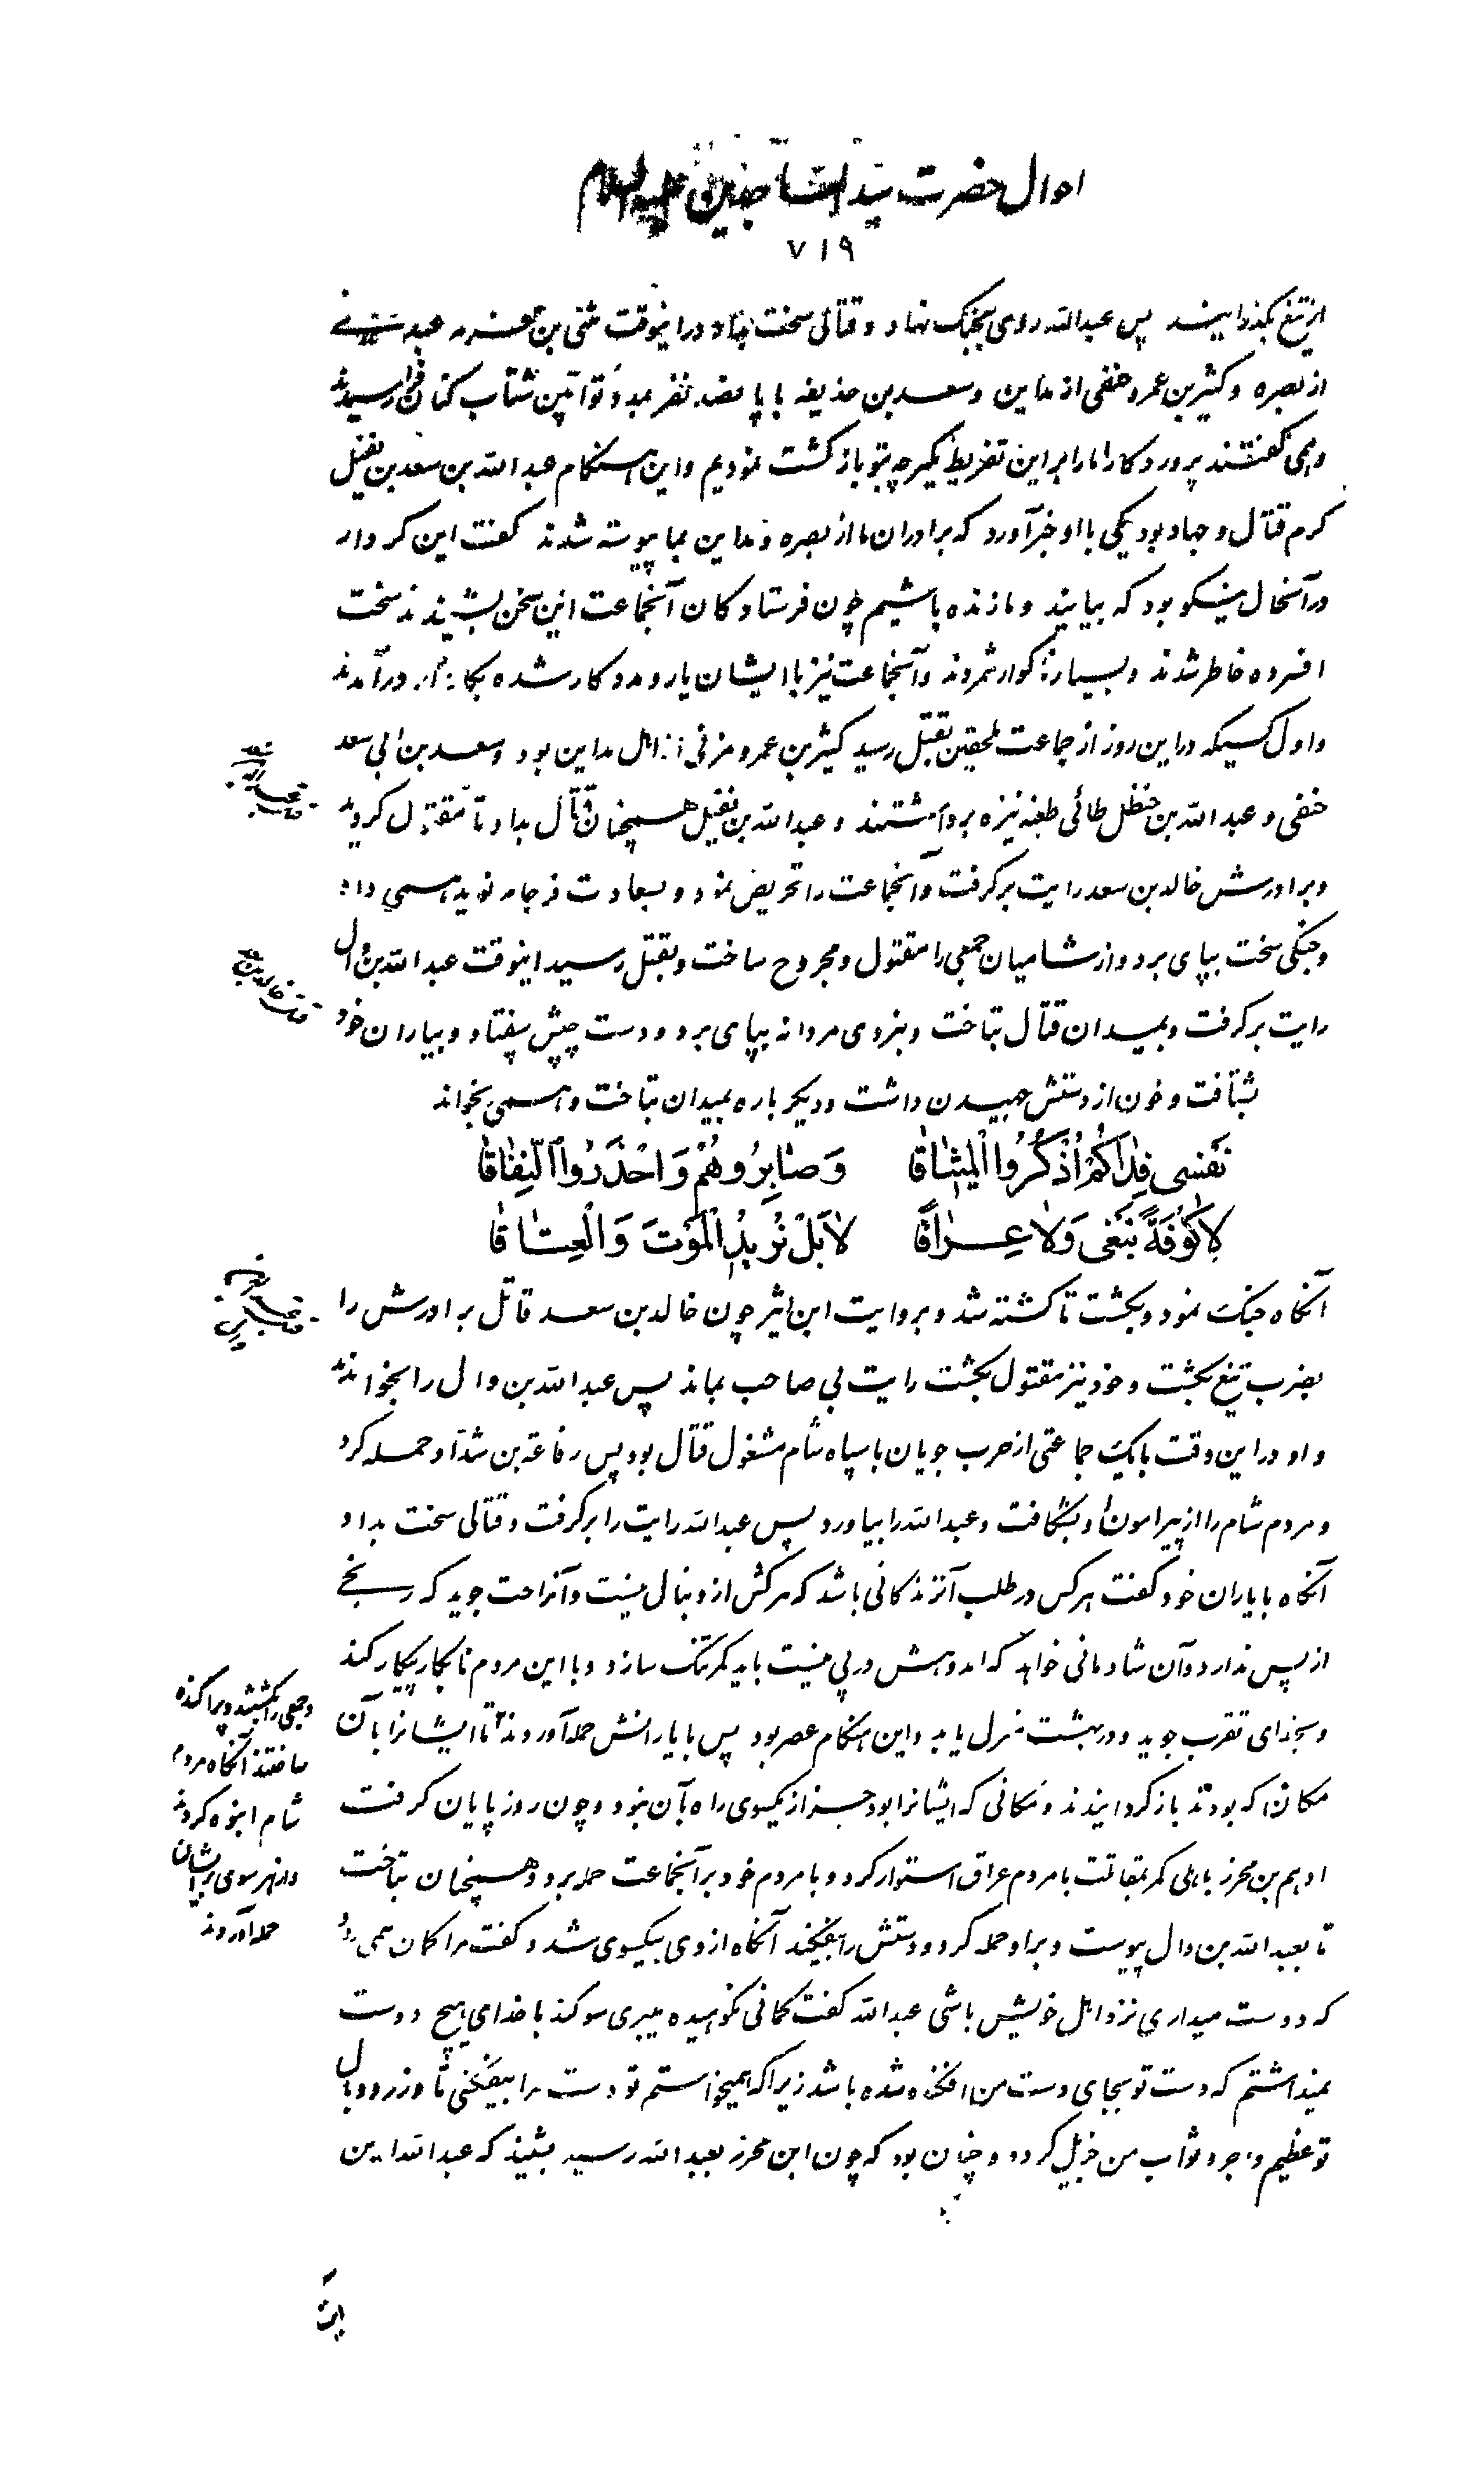 احوال حضرت سید الساجدین علیه السلام
۷۱۹
از تیغ بگذرانیدند پس عبدالله روی بجنگ نهاد و قتالی سخت بداد و در اینوقت مثنی بن مخرمه عبدی
از بصره و کثیر بن عمرو حنفی از مداین و سعد بن حذیفه با پانصد نفر بمدد توابین شتاب کنان فرا رسیدند
و همی گفتند پروردگارا ما را بر این تفریط مگیر چه بتو بازگشت نمودیم و این هنگام عبدالله بن سعد بن نفیل
گرم قتال و جهاد بود یکی با او خبر آورد که برادران ما از بصره و مداین بما پیوسته شدند گفت این کردار
در آنحال نیکو بود که بیایند و ما زنده باشیم چون فرستادگان آنجماعت این سخن بشنیدند سخت
افسرده خاطر شدند و بسیار ناگوار شمردند و آنجماعت نیز با ایشان یار و مددکار شده بکارزار درآمدند
و اول کسیکه در این روز از جماعت ملحقین بقتل رسید کثیر بن عمرو مزنی از اهل مداین بود و سعد بن ابی سعد
حنفی و عبدالله بن حنظل طائی طعنه نیزه برداشتند و عبدالله بن نفیل همچنان قتال بداد تا مقتول گردید
و برادرش خالد بن سعد رایت برگرفت و آنجماعت را تحریض نمود و بسعادت فرجام نوید همی داد
و جنگی سخت بپای برد و از شامیان جمعی را مقتول و مجروح ساخت و بقتل رسید اینوقت عبدالله بن وال
رایت برگرفت و بمیدان قتال بتاخت و نبردی مردانه بپای برد و دست چپش بیفتاد و بیاران خود
بشتافت و خون از دستش چیدن داشت و دیگر باره بمیدان بتاخت و همی بخواند
نَفْسی فِداکُمْ اُذْکُرُوا الْمیثاقا وَصابِرُوهُمْ وَاحْذَرُوا النِّفاقا
لاکُوفَةً نَبْغی وَلاعِراقا لا بَلْ نُریدُ الْمَوْتَ وَالْعِتاقا
آنگاه جنگ نمود و بکشت تا کشته شد و بروایت ابن اثیر چون خالد بن سعد قاتل برادرش را
بضرب تیغ بکشت و خود نیز مقتول بگشت رایت بی صاحب بماند پس عبدالله بن وال را بخواندند
و او در این وقت با یک جماعتی از حرب جویان با سپاه شام مشغول قتال بود پس رفاعة بن شداد حمله کرد
و مردم شام را از پیرامون او بشکافت و عبدالله را بیاورد پس عبدالله رایت را برگرفت و قتالی سخت بداد
آنگاه با یاران خود گفت هرکس در طلب آنزندگانی باشد که مرگش از دنبال نیست و آنراحت جوید که رنجی
از پس ندارد و آن شادمانی خواهد که اندوهش در پی نیست باید کمر تنگ سازد و با این مردم نابکار پیکار کند
و بخدای تقرب جوید و در بهشت منزل یابد و این هنگام عصر بود پس با یارانش حمله آوردند تا ایشانرا بآن
مکان که بودند باز گردانیدند و مکانی که ایشانرا بود جز از یکسوی راه بآن نبود و چون روز پایان گرفت
ادهم بن محرز باهلی کمر بمقاتلت با مردم عراق استوار کرد و با مردم خود بر آنجماعت حمله برد و همچنان بتاخت
تا بعبدالله بن وال پیوست و بر او حمله کرد و دستش را بیفکند آنگاه از وی بیکسوی شد و گفت مرا گمان همی رود
که دوست میداری نزد اهل خویش باشی عبدالله گفت گمانی نکوهیده میبری سوگند با خدای هیچ دوست
نمیداشتم که دست تو بجای دست من افکنده شده باشد زیرا که همیخواستم تو دست مرا بیفکنی تا وزر و وبال
تو عظیم و اجر و ثواب من جزیل گردد و چنان بود که چون ابن محرز بعبدالله رسید بشنید که عبدالله این
و جمعی را بکشتند و پراکنده
ساختند آنگاه مردم
شام انبوه کردند
و از هر سوی بر ایشان
حمله آوردند